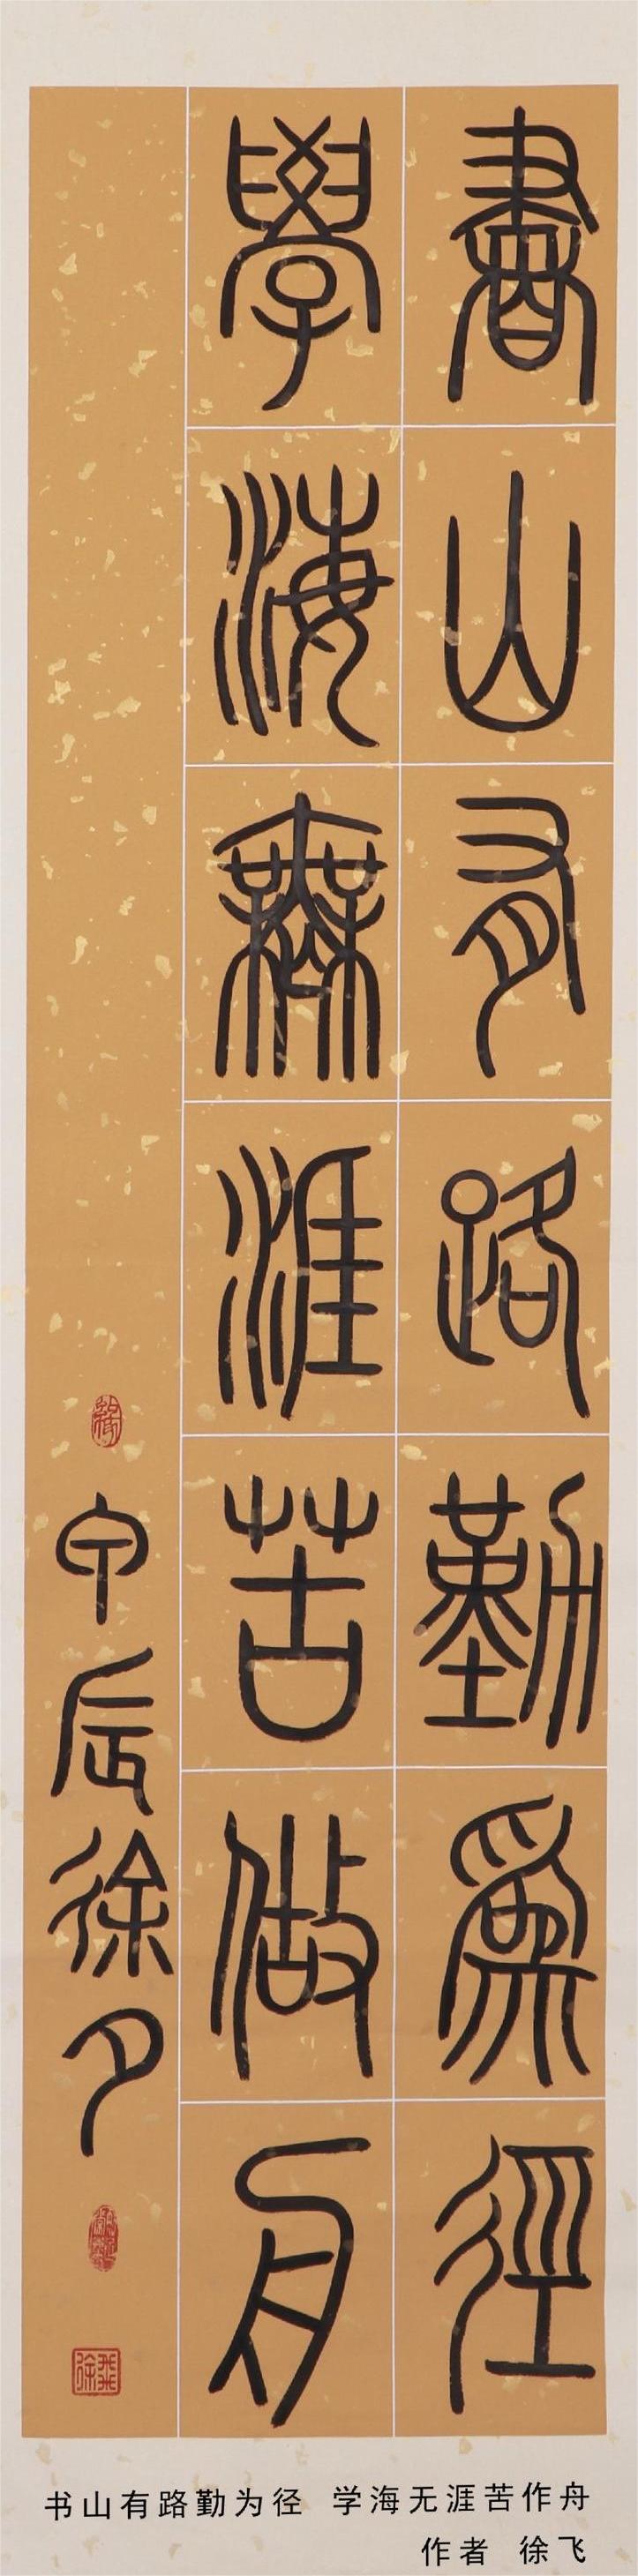 書山有路勤爲徑
學海無涯苦做舟
緣
甲辰徐
徐飛
书山有路勤为径 学海无涯苦作舟
作者 徐飞